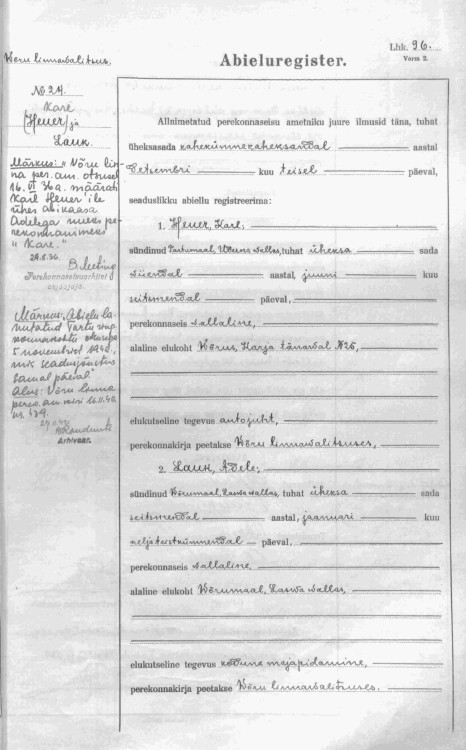 Lhk. 96.
Vorm 2.
Abieluregister.
Võru linnavalitsus.
№ 24.
Kare
(Heuer) ja
Lauk.
Märkus: "Võru lin-
na per. am. otsusel
16. VI 36 a. määrati
Karl Heuer'ile
ühes abikaasa
Adelega uueks pe-
rekonnanimeks
"Kare."
29.8.36.
Perekonnaseisuarhiivi
Märkus: Abielu la-
hutatud Tartu ring-
konnakohtu otsusega
5 novembrist 1940,
mis seadusjõustus
samal päeval.
Alus: Võru linna
16.11.40.
nr. 429.
Arhivaar.
Allnimetatud perekonnaseisu ametniku juure ilmusid täna, tuhat
üheksasada kahekümneaheksandal aastal
detsembri kuu teisel päeval,
seaduslikku abiellu registreerima:
1. Heuer, Karl,
sündinud Tartumaal, wallas, tuhat üheksa sada
wiiendal aastal, juuni kuu
seitsmendal päeval,
perekonnaseis wallaline,
alaline elukoht Wõrus, Karja tänawal № 25,
elukutseline tegevus autojuht,
perekoonakirja peetakse Wõru linnawalitsuses,
2. Lauk, Adele,
sündinud Wõrumaal, Laswa wallas, tuhat üheksa sada
seitsmendal aastal, jaanuari kuu
neljateistkümnendal päeval,
perekonnaseis wallaline,
alaline elukoht Wõrumaal, Laswa wallas,
elukutseline tegevus kodune majapidamine,
perekonnakirja peetakse Wõru linnawalitsuses.